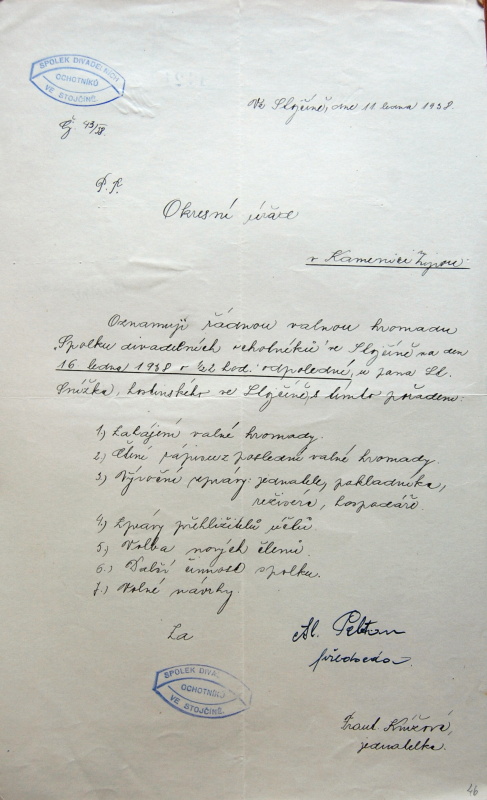 SPOLEK DIVADELNÍCH
OCHOTNÍKŮ
VE STOJČÍNĚ.
Ve Stojčíně, dne 11 ledna 1938.
Č 43/38.
P. T.
Okresní úřad
v Kamenici
Oznamuji řádnou valnou hromadu
Spolku divadelních ochotníků ve Stojčíně na den
16 ledna 1938 o hod. odpoledne, u pana
hostinského ve Stojčíně, s tímto pořadem:
1.) Zahájení valné hromady.
2.) Čtení zápisu z poslední valné hromady.
3.) Výroční zprávy: jednatele, pokladníka,
režiséra, hospodáře.
4.) Zprávy přehližitelů účtů.
5.) Volba nových členů.
6.) Další činnost spolku.
7.) Volné návrhy.
Za
předseda.
SPOLEK DIVA
OCHOTNÍKŮ
VE STOJČÍNĚ.
jednatelka.
46